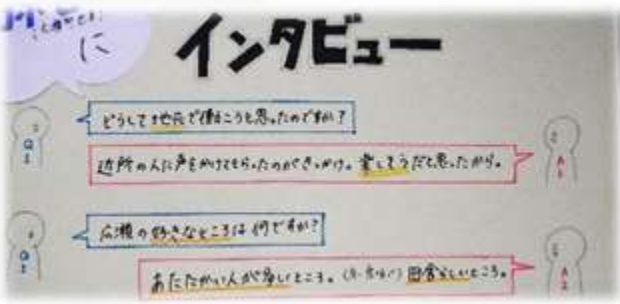 に
インタビュー
どうして地元で働こうと思ったのですか？
Q1
近所の人に声をかけてもらったのがきっかけ。楽しそうだと思ったから。
A1
広瀬の好きなところは何ですか？
Q2
あたたかい人が多いところ。田舎らしいところ。
A2